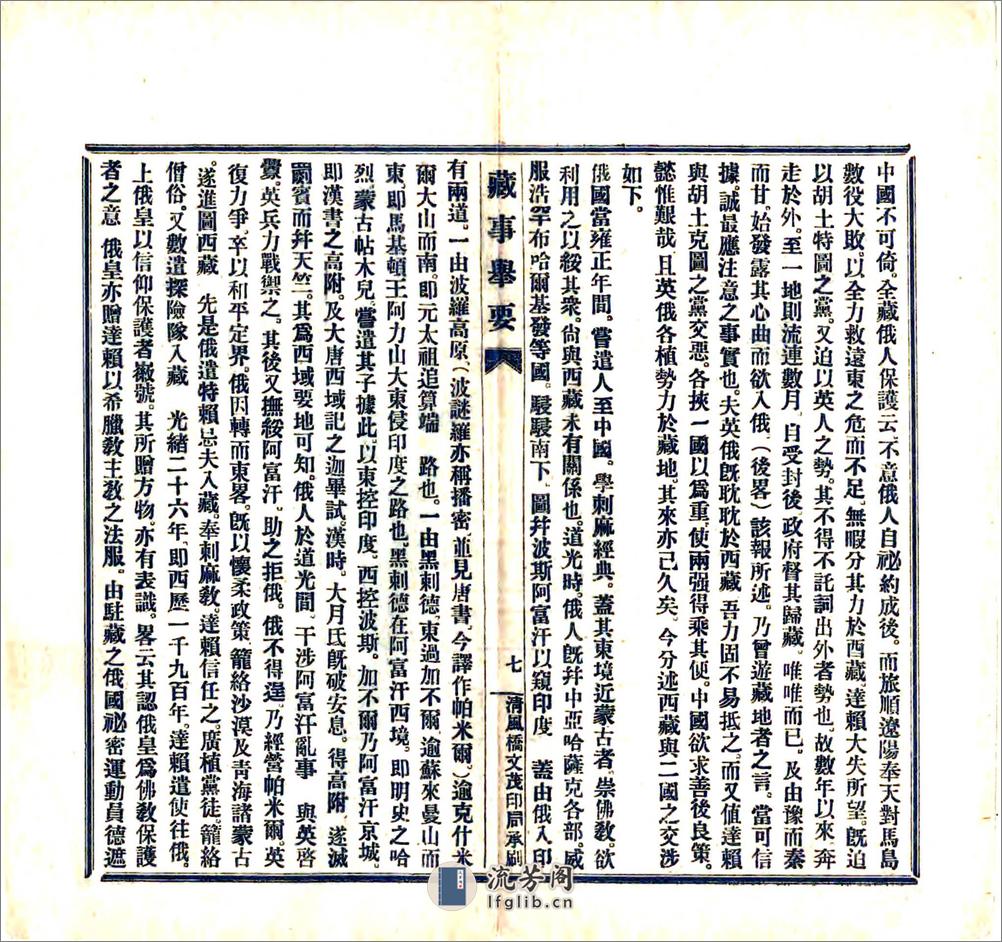 中國不可倚。全藏俄人保護云。不意俄人自祕約成後。而旅順遼陽奉天對馬島
數役大敗。以全力救遠東之危而不足。無暇分其力於西藏。達賴大失所望。旣迫
以胡土特圖之黨。又迫以英人之勢。其不得不託詞出外者勢也。故數年以來。奔
走於外。至一地則流連數月。自受封後。政府督其歸藏。唯唯而已。及由豫而秦
而甘。始發露其心曲而欲入俄。(後畧)該報所述。乃曾遊藏地者之言。當可信
據。誠最應注意之事實也。夫英俄旣耽耽於西藏。吾力固不易抵之。而又值達賴
與胡土克圖之黨交惡。各挾一國以爲重。使兩强得乘其便。中國欲求善後良策。
懿惟艱哉。且英俄各植勢力於藏地。其來亦已久矣。今分述西藏與二國之交涉
如下。
俄國當雍正年間。嘗遣人至中國。學刺麻經典。蓋其東境近蒙古者。崇佛敎。欲
利用之以綏其衆。尙與西藏未有關係也。道光時。俄人旣幷中亞哈薩克各部。威
服浩罕布哈爾基發等國。駸駸南下。圖幷波斯阿富汗以窺印度 蓋由俄入印
藏事舉要
七
清風橋文茂印局承刷
有兩道。一由波羅高原。(波謎羅亦稱播密。並見唐書。今譯作帕米爾。)逾克什米
爾大山而南。即元太祖追算端 路也。一由黑剌德。東過加不爾。逾蘇來曼山而
東。即馬基頓王阿力山大東侵印度之路也。黑剌德在阿富汗西境。即明史之哈
烈。蒙古帖木兒。嘗遣其子據此。以東控印度。西控波斯。加不爾乃阿富汗京城。
即漢書之高附。及大唐西域記之迦畢試。漢時。大月氏旣破安息。得高附。遂滅
罽賓而幷天竺。其爲西域要地可知。俄人於道光間。干涉阿富汗亂事 與英啓
釁。英兵力戰禦之。其後又撫綏阿富汗。助之拒俄。俄不得逞。乃經營帕米爾。英
復力爭。卒以和平定界。俄因轉而東畧。旣以懷柔政策。籠絡沙漠及靑海諸蒙古
遂進圖西藏 先是俄遣特賴忌夫入藏。奉刺麻敎。達賴信任之。廣植黨徒。籠絡
僧俗。又數遣探險隊入藏 光緖二十六年。即西歷一千九百年。達賴遣使往俄。
上俄皇以信仰保護者徽號。其所贈方物。亦有表識。畧云其認俄皇爲佛敎保護
者之意 俄皇亦贈達賴以希臘敎主敎之法服。由駐藏之俄國祕密運動員德遮
流芳阁
lfglib.cn